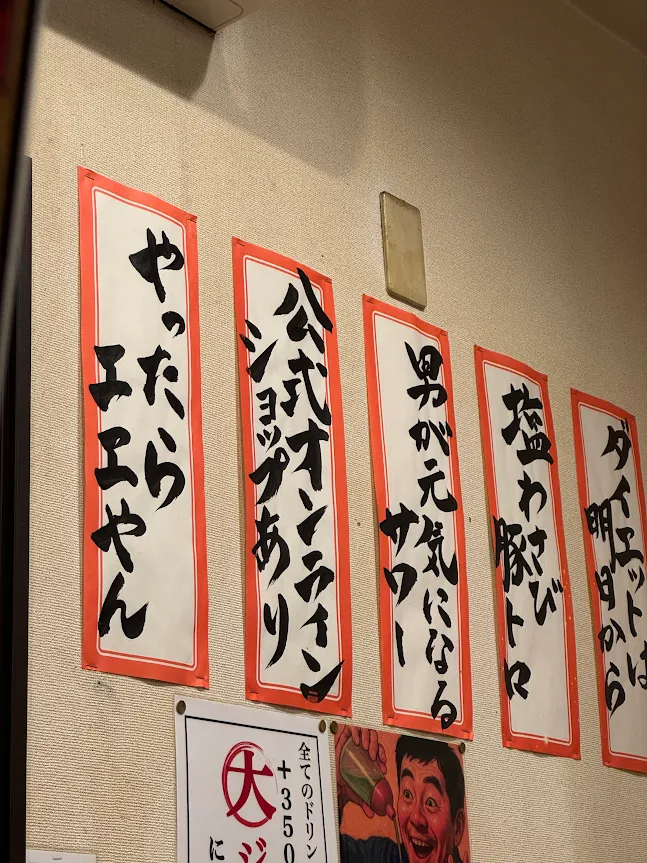 ダイエットは
明日から
塩わさび
豚トロ
男が元気になる
サワー
公式オンライン
ショップあり
やったら
エエやん
全てのドリン
+350
大ジ
に